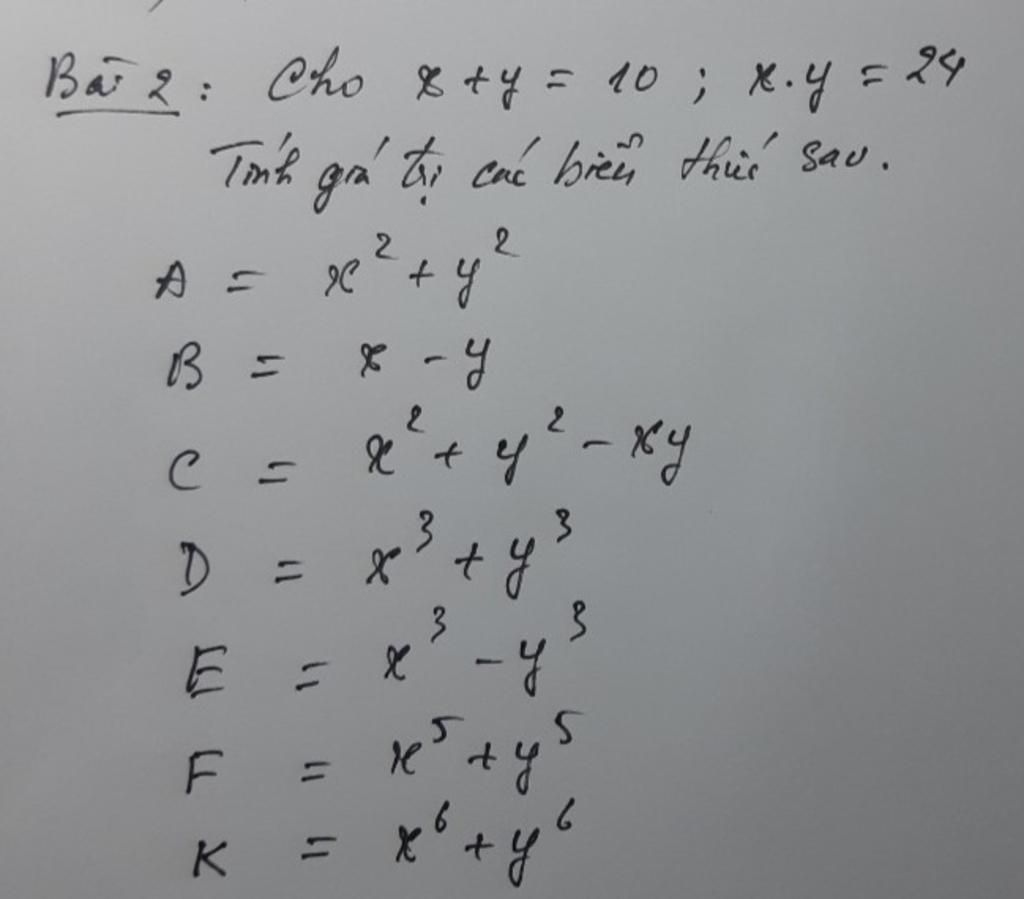 Bài 2: Cho x + y = 10 ; x . y = 24
Tính giá trị các biểu thức sau.
A = x² + y²
B = x - y
C = x² + y² - xy
D = x³ + y³
E = x³ - y³
F = x⁵ + y⁵
K = x⁶ + y⁶